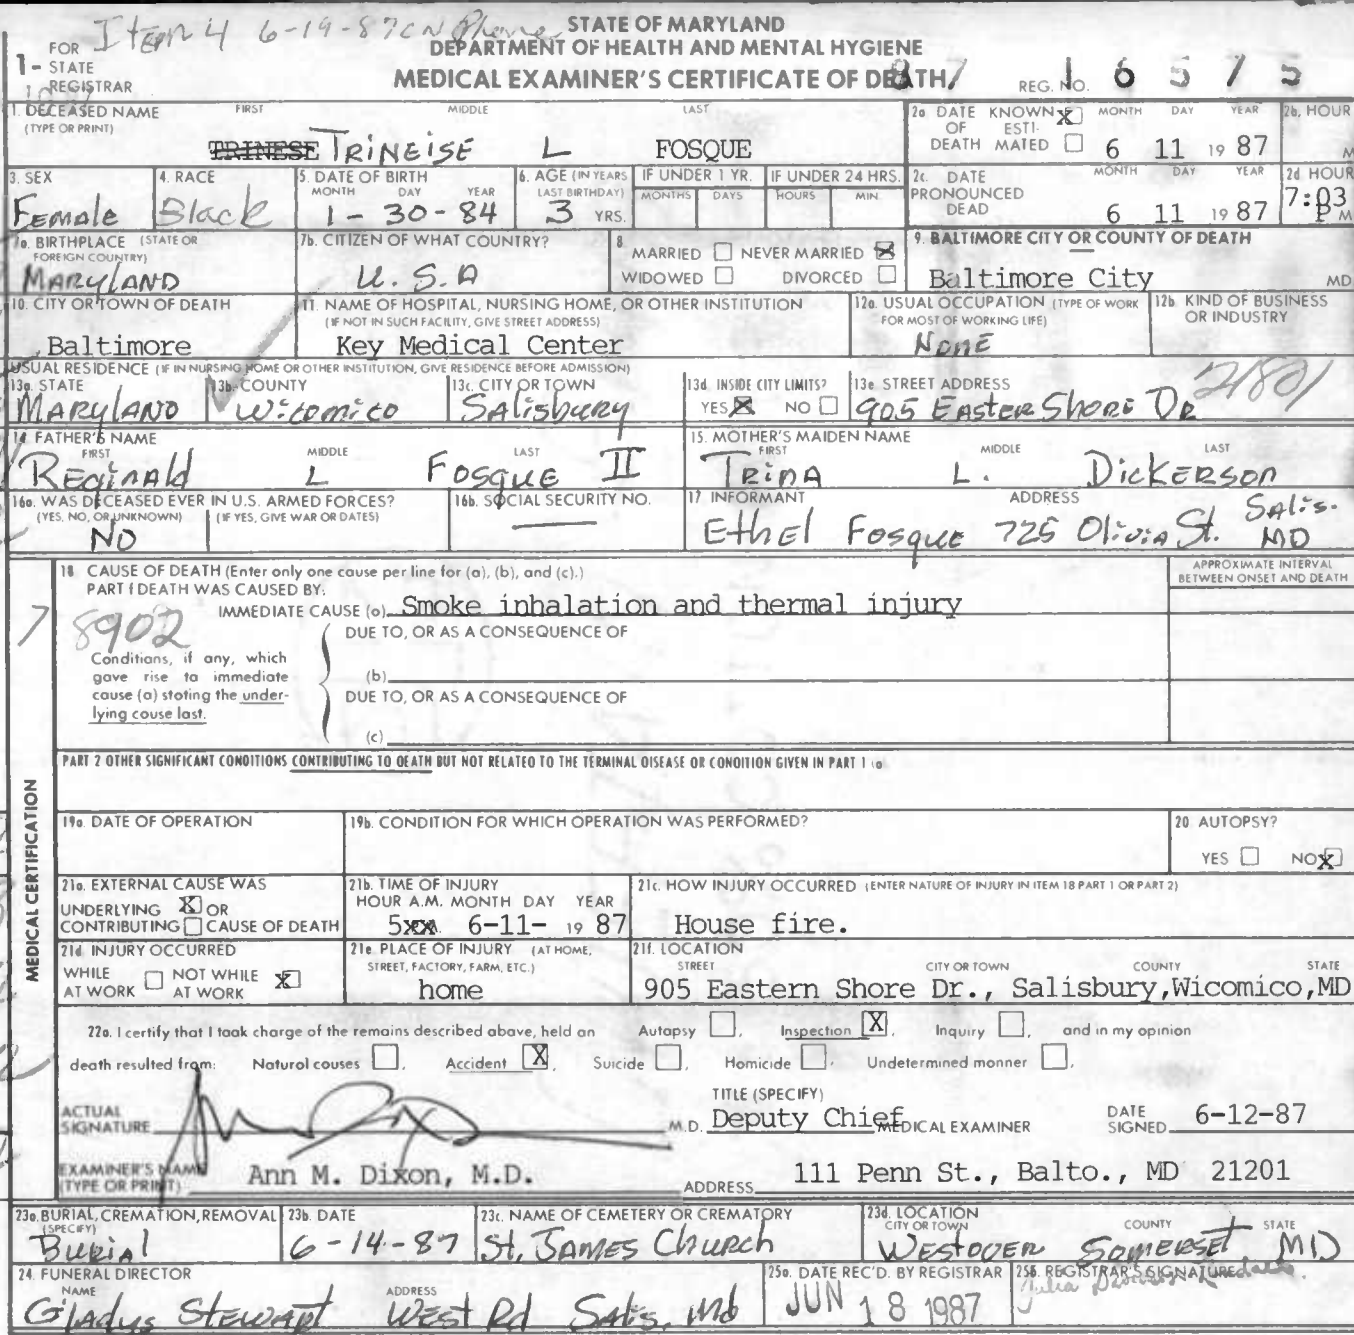 Item 4 6-19-87 CN Phone
STATE OF MARYLAND
DEPARTMENT OF HEALTH AND MENTAL HYGIENE
MEDICAL EXAMINER'S CERTIFICATE OF DEATH
1- FOR STATE REGISTRAR
87 REG. NO. 16575
1. DECEASED NAME (TYPE OR PRINT) FIRST MIDDLE LAST
TRINESE TRINEISE L FOSQUE
2a DATE OF DEATH KNOWN X ESTIMATED MONTH DAY YEAR 6 11 1987
2b. HOUR M
3. SEX Female
4. RACE Black
5. DATE OF BIRTH MONTH DAY YEAR 1-30-84
6. AGE (IN YEARS LAST BIRTHDAY) 3 YRS.
IF UNDER 1 YR. MONTHS DAYS
IF UNDER 24 HRS. HOURS MIN.
2c. DATE PRONOUNCED DEAD MONTH DAY YEAR 6 11 1987
2d HOUR 7:03 P M
7a. BIRTHPLACE (STATE OR FOREIGN COUNTRY) MARYLAND
7b. CITIZEN OF WHAT COUNTRY? U.S.A
8. MARRIED NEVER MARRIED X
WIDOWED DIVORCED
9. BALTIMORE CITY OR COUNTY OF DEATH Baltimore City MD
10. CITY OR TOWN OF DEATH Baltimore
11. NAME OF HOSPITAL, NURSING HOME, OR OTHER INSTITUTION (IF NOT IN SUCH FACILITY, GIVE STREET ADDRESS) Key Medical Center
12a. USUAL OCCUPATION (TYPE OF WORK FOR MOST OF WORKING LIFE) NONE
12b. KIND OF BUSINESS OR INDUSTRY
USUAL RESIDENCE (IF IN NURSING HOME OR OTHER INSTITUTION, GIVE RESIDENCE BEFORE ADMISSION)
13a. STATE MARYLAND
13b. COUNTY Wicomico
13c. CITY OR TOWN Salisbury
13d. INSIDE CITY LIMITS? YES X NO
13e STREET ADDRESS 905 EASTER Shore DR 21801
14. FATHER'S NAME FIRST MIDDLE LAST Reginald L Fosque II
15. MOTHER'S MAIDEN NAME FIRST MIDDLE LAST TRINA L. DICKERSON
16a. WAS DECEASED EVER IN U.S. ARMED FORCES? (YES, NO, OR UNKNOWN) (IF YES, GIVE WAR OR DATES) NO
16b. SOCIAL SECURITY NO.
17. INFORMANT ADDRESS Ethel Fosque 725 Olivia St. Salis. MD
18 CAUSE OF DEATH (Enter only one cause per line for (a), (b), and (c).)
APPROXIMATE INTERVAL BETWEEN ONSET AND DEATH
PART I DEATH WAS CAUSED BY:
IMMEDIATE CAUSE (a) Smoke inhalation and thermal injury
7
8902
DUE TO, OR AS A CONSEQUENCE OF
Conditions, if any, which gave rise to immediate cause (a) stating the underlying cause last.
(b)
DUE TO, OR AS A CONSEQUENCE OF
(c)
PART 2 OTHER SIGNIFICANT CONDITIONS CONTRIBUTING TO DEATH BUT NOT RELATED TO THE TERMINAL DISEASE OR CONDITION GIVEN IN PART 1 (a
MEDICAL CERTIFICATION
19a. DATE OF OPERATION
19b. CONDITION FOR WHICH OPERATION WAS PERFORMED?
20 AUTOPSY? YES NO X
21a. EXTERNAL CAUSE WAS
UNDERLYING X OR
CONTRIBUTING CAUSE OF DEATH
21b. TIME OF INJURY
HOUR A.M. MONTH DAY YEAR
5xxx 6-11- 1987
21c. HOW INJURY OCCURRED (ENTER NATURE OF INJURY IN ITEM 18 PART 1 OR PART 2)
House fire.
21d INJURY OCCURRED
WHILE AT WORK NOT WHILE AT WORK X
21e PLACE OF INJURY (AT HOME, STREET, FACTORY, FARM, ETC.) home
21f. LOCATION STREET CITY OR TOWN COUNTY STATE
905 Eastern Shore Dr., Salisbury, Wicomico, MD
22a. I certify that I took charge of the remains described above, held an Autopsy , Inspection X , Inquiry , and in my opinion
death resulted from: Natural causes , Accident X , Suicide , Homicide , Undetermined manner .
ACTUAL SIGNATURE M.D.
TITLE (SPECIFY) Deputy Chief MEDICAL EXAMINER
DATE SIGNED 6-12-87
EXAMINER'S NAME (TYPE OR PRINT) Ann M. Dixon, M.D.
ADDRESS 111 Penn St., Balto., MD 21201
23a. BURIAL, CREMATION, REMOVAL (SPECIFY) Burial
23b. DATE 6-14-87
23c. NAME OF CEMETERY OR CREMATORY St. JAMES Church
23d. LOCATION CITY OR TOWN COUNTY STATE WESTOVER SOMERSET MD
24. FUNERAL DIRECTOR NAME ADDRESS Gladys Stewart West Rd Salis. Md
25a. DATE REC'D. BY REGISTRAR JUN 18 1987
25b. REGISTRAR'S SIGNATURE